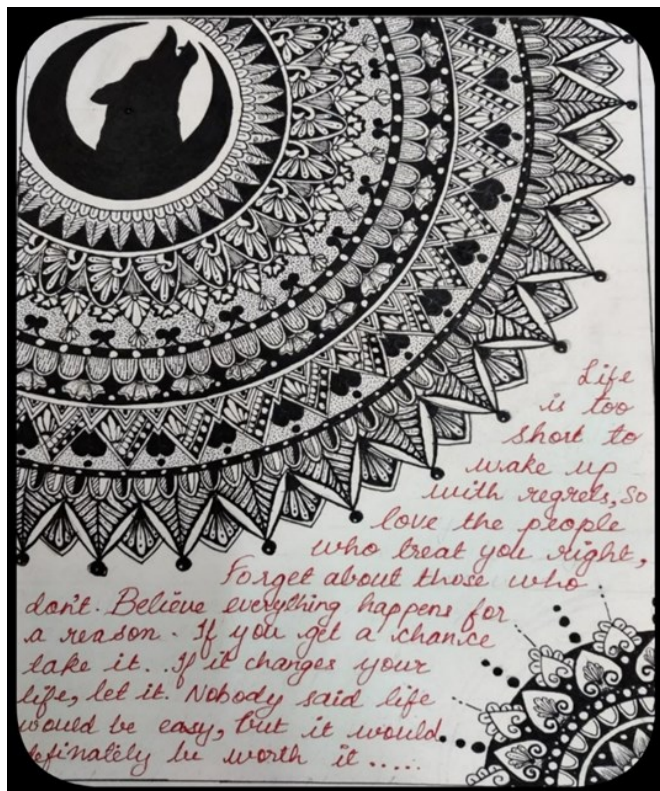 Life
is too
short to
wake up
with regrets, so
love the people
who treat you right,
Forget about those who
don't. Believe everything happens for
a reason. If you get a chance
take it.. If it changes your
life, let it. Nobody said life
would be easy, but it would
definately be worth it .....